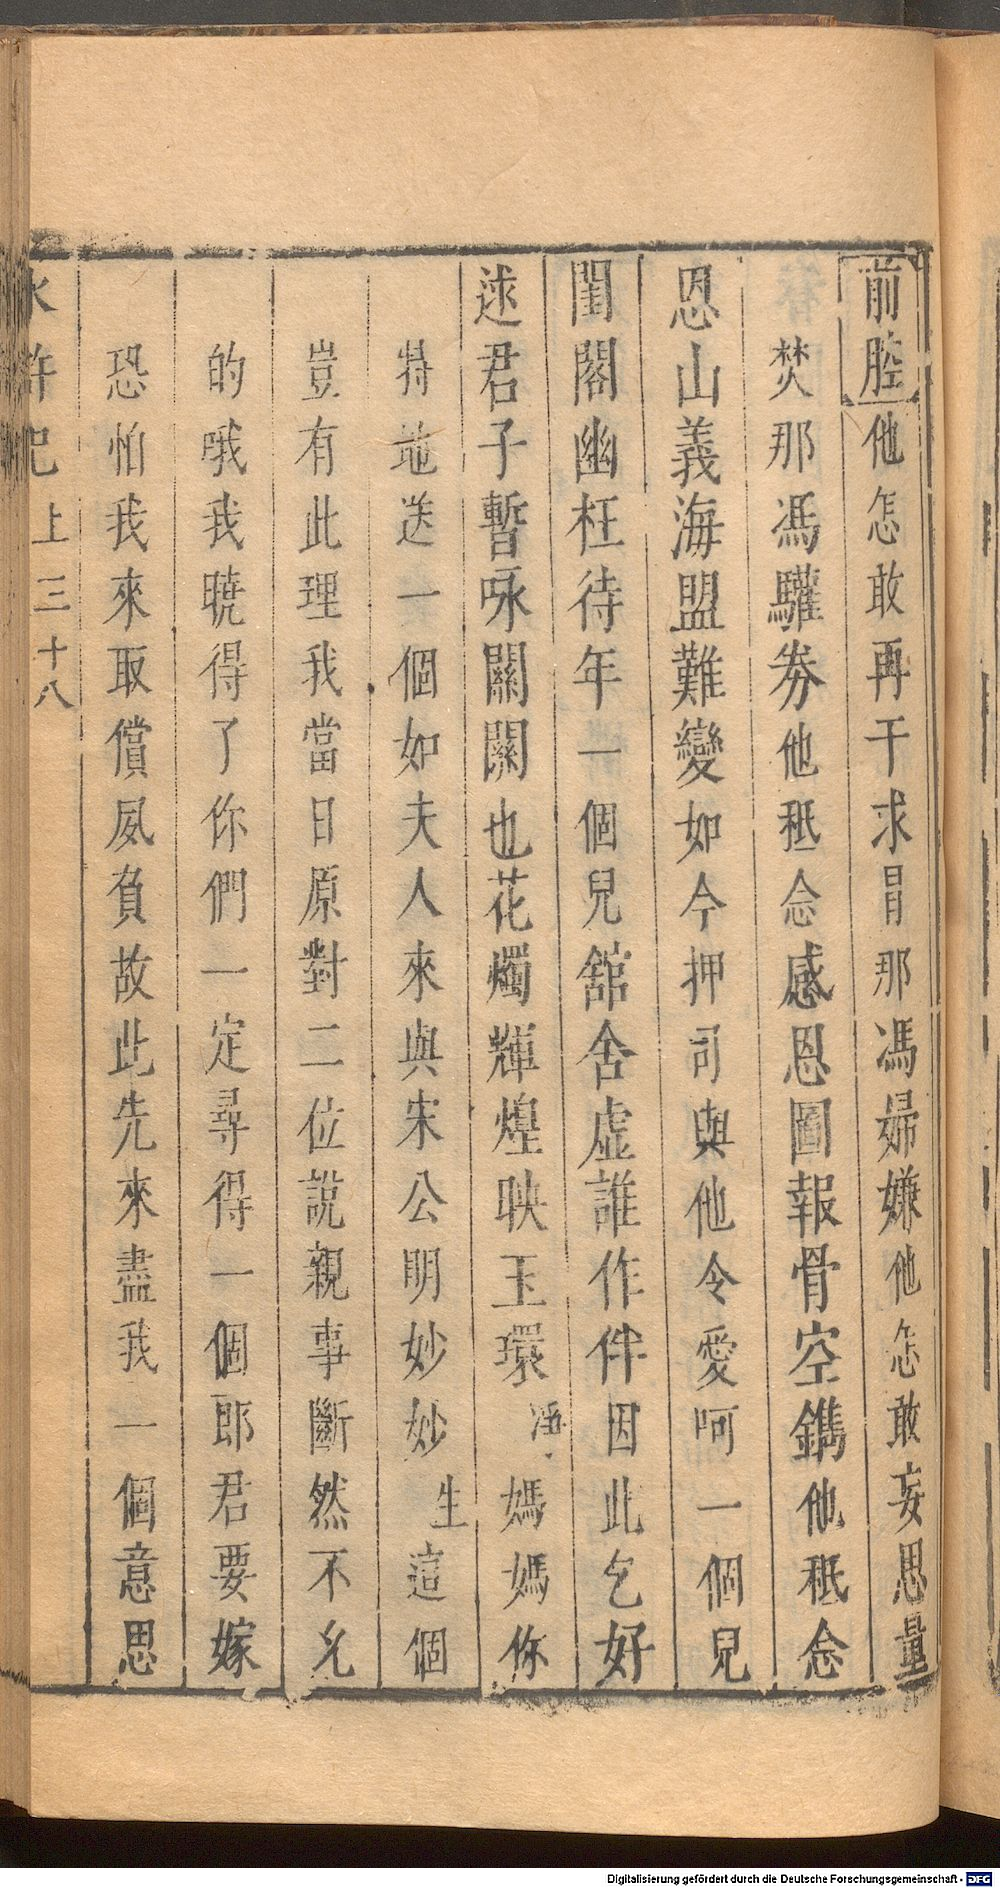 前腔他怎敢再干求冒那馮婦嫌他怎敢妄思量
焚那馮驩劵他秪念感恩圖報骨空鐫他秪念
恩山義海盟難變如今押司與他令愛呵一個兒
閨閣幽枉待年一個兒舘舍虛誰作伴因此乞好
逑君子暫咏關關也花燭輝煌映玉環淨媽媽你
特地送一個如夫人來與宋公明妙妙生這個
豈有此理我當日原對二位說親事斷然不允
的哦我曉得了你們一定尋得一個郎君要嫁
恐怕我來取償夙負故此先來盡我一個意思
水滸記上三十八
Digitalisierung gefördert durch die Deutsche Forschungsgemeinschaft - DFG